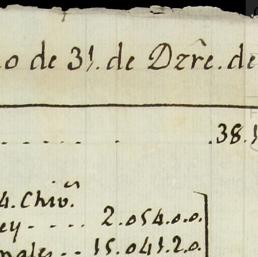 o de 31. de Dzrē. de
. . . . . . . 38.
4. Chivō.
ey - - - - 2.054.0.0.
nales - - 15.041.2.0.